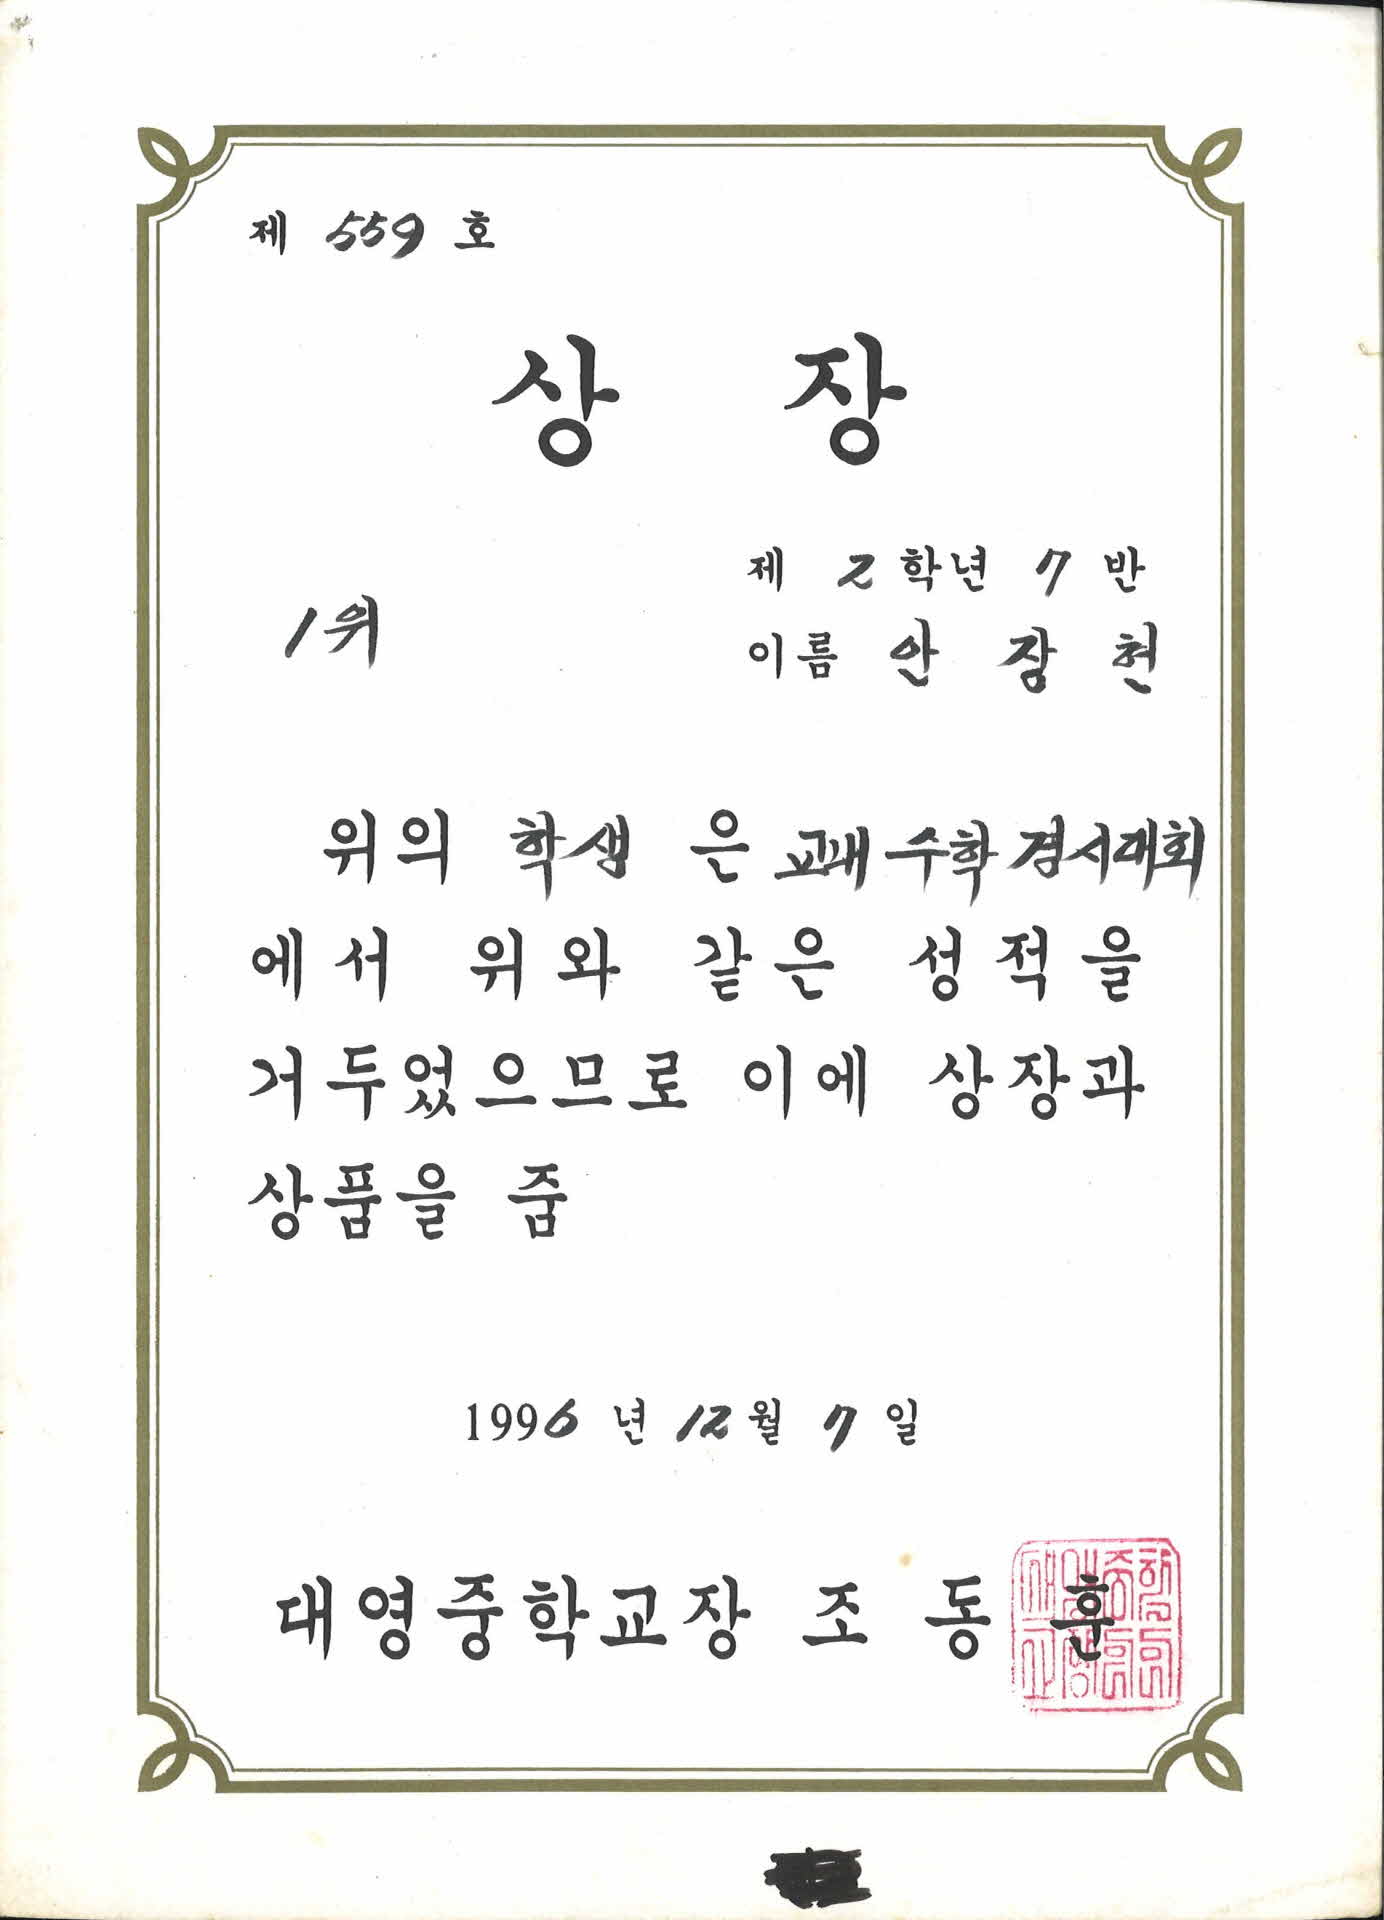 제 559 호
상 장
제 2 학년 7 반
1위
이름 안 장 현
위의 학생 은 교내 수학 경시대회
에서 위와 같은 성적을
거두었으므로 이에 상장과
상품을 줌
1996 년 12 월 7 일
대영중학교장 조 동 훈